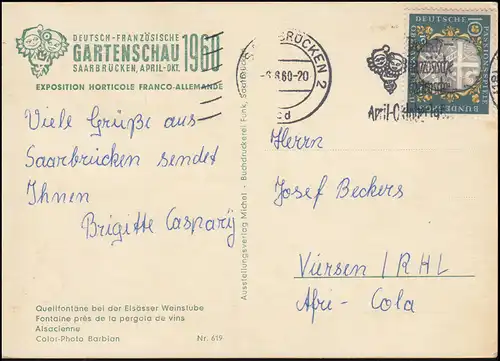 DEUTSCH-FRANZÖSISCHE
GARTENSCHAU 1960
SAARBRÜCKEN, APRIL-OKT.
EXPOSITION HORTICOLE FRANCO-ALLEMANDE
Viele Grüße aus
Saarbrücken sendet
Ihnen
Brigitte Caspary
Quellfontäne bei der Elsässer Weinstube
Fontaine près de la pergola de vins
Alsacienne
Color-Photo Barbian Nr. 619
Ausstellungsverlag Michel - Buchdruckerei Funk, Saarbrücken
BRÜCKEN 2
8.60-20
DEUTSCHE
BUNDESPOST
PASSIONSSPIELE
Herrn
Josef Beckers
Viersen / RHL
Afri-Cola